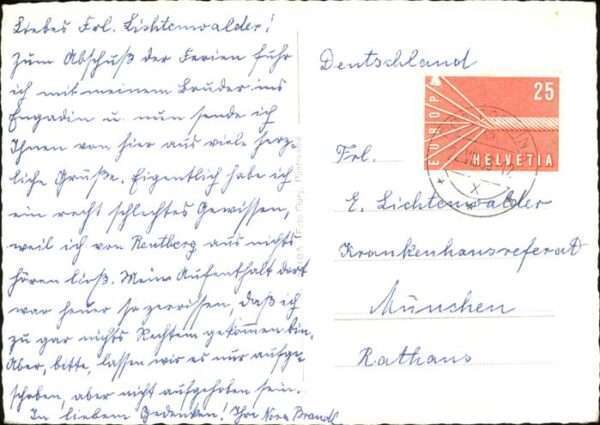 Liebes Frl. Lichtenwalder!
Zum Abschluß der Ferien fuhr
ich mit meinem Bruder ins
Engadin u. nun sende ich
Ihnen von hier aus viele herz-
liche Grüße. Eigentlich habe ich
ein recht schlechtes Gewissen,
weil ich von aus nichts
hören ließ. Mein Aufenthalt dort
war heuer so zerrissen, daß ich
zu gar nichts Rechtem gekommen bin.
Aber, bitte, lassen wir es nur aufge-
schoben, aber nicht aufgehoben sein.
In liebem Gedenken! Ihre Brandl
Deutschland
25
EUROPA
HELVETIA
Frl.
E. Lichtenwalder
Krankenhausreferat
München
Rathaus